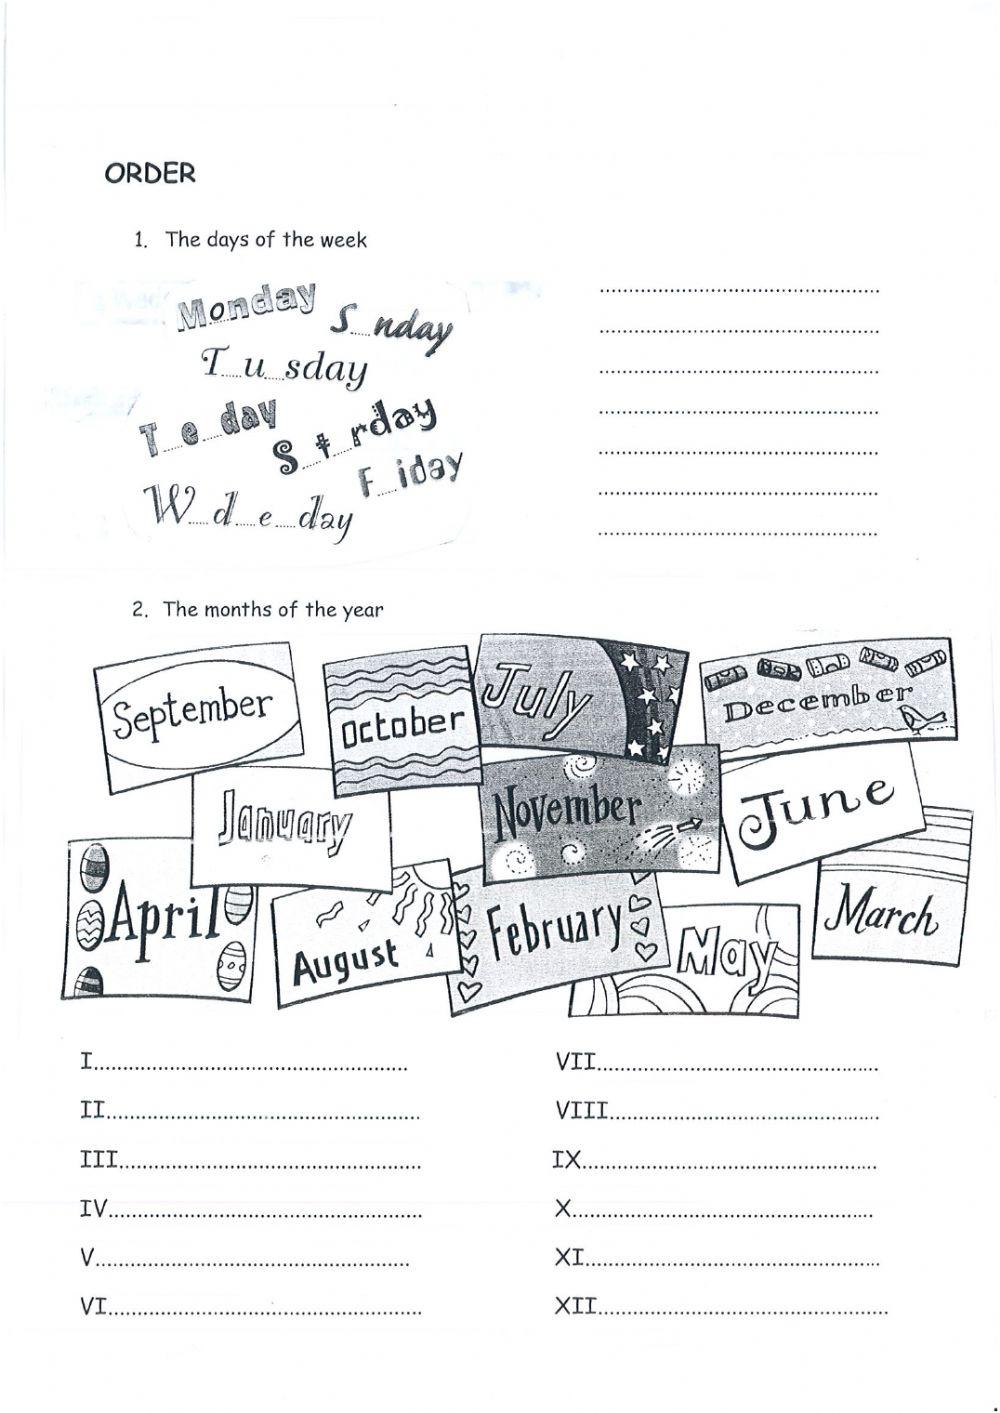 ORDER
1. The days of the week
Monday
S...nday
T...u...sday
T...e...day
S...t...rday
F...iday
W...d...e...day
................................................
................................................
................................................
................................................
................................................
................................................
................................................
2. The months of the year
September
October
July
December
January
November
June
April
August
February
May
March
I.....................................................
VII................................................
II.....................................................
VIII..............................................
III...................................................
IX..................................................
IV.....................................................
X...................................................
V.....................................................
XI..................................................
VI.....................................................
XII.................................................